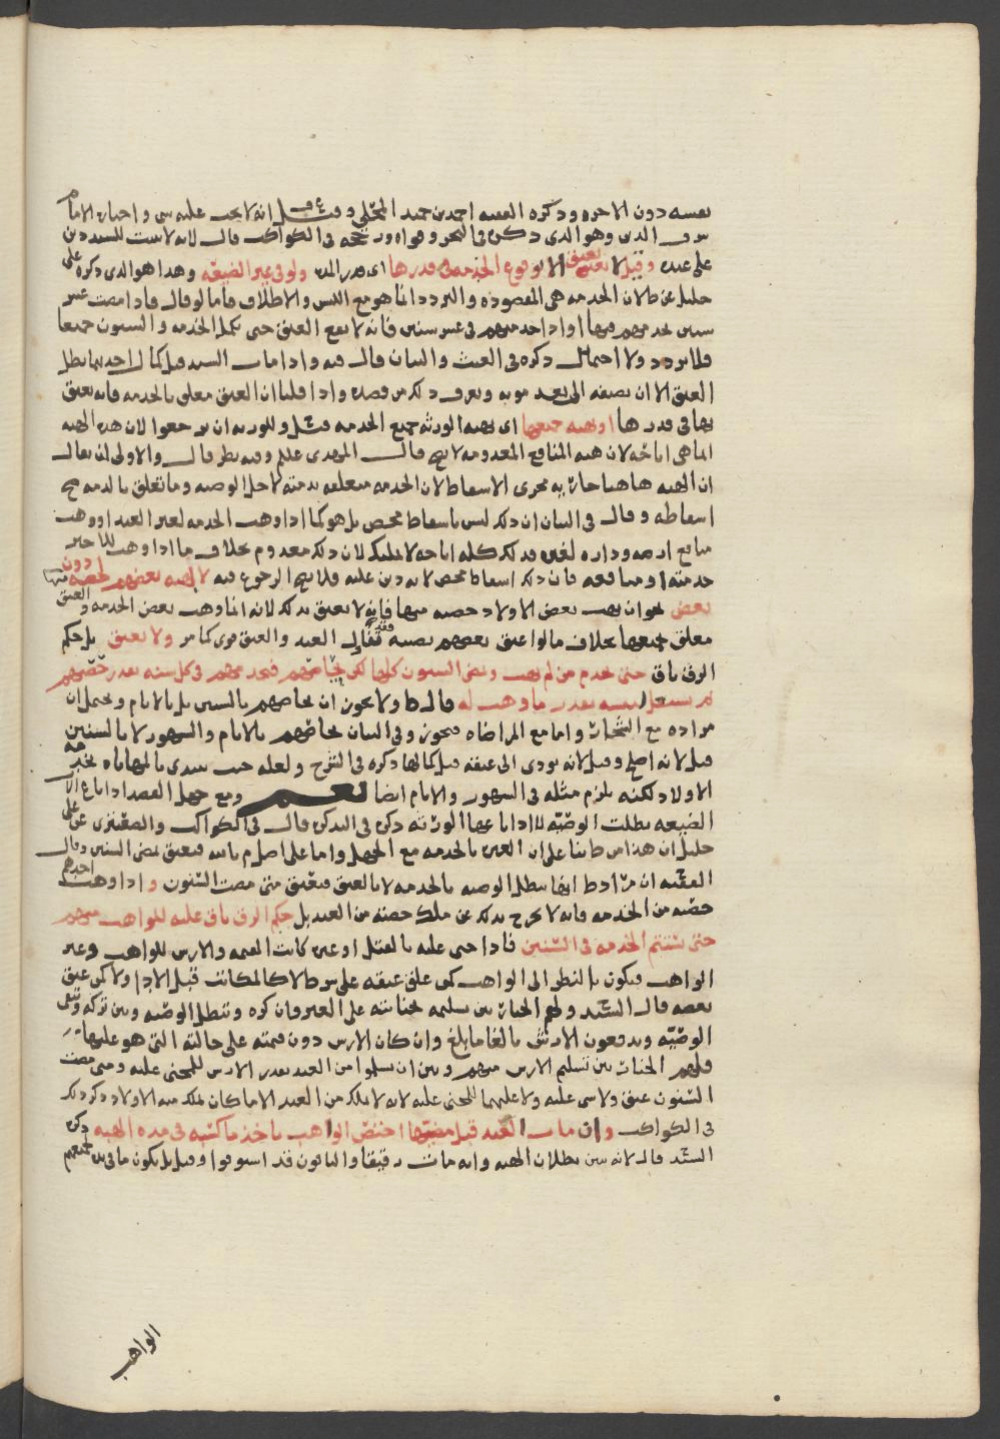 نفسه دون الاخره وذكره الفقيه احمد بن حميد المحلي وقيل انه لا يجب عليه شي واختاره الامام
شرف الدين وهو الذي ذكره في البحر وقواه ورجحه في الكواكب قال لانه لا يثبت للسيد دين
على عبده وقيل لا يعتق الا بوقوع الخدمه في قدرها اي قدر المده ولو في غير الضيعه وهذا هو الذي ذكره على
خليل عن ط لان الخدمه هي المقصوده والتردد انما هو مع اللبس والاطلاق فاما لو قال فاذا مضت عشر
سنين تخدمهم فيها او اذا خدمتهم في عشر سنين فانه لا يقع العتق حتى تكمل الخدمه والسنون جميعا
فلا تردد ولا احتمال ذكره في الغيث والبيان قال فيه واذا مات السيد قبل كمال احدهما بطل
العتق الا ان يضيفه الى بعد موته ويعرف ذلك من قصده واذا قلنا ان العتق معلق بالخدمه فانه يعتق
بها في قدرها او بهبه جميعها اي بهبه الورثه جميع الخدمه قيل وللورثه ان يرجعوا لان هذه الهبه
انما هي اباحه لان هبه المنافع المعدومه لا تصح قال المهدي علم وفيه نظر قال والاولى ان يقال
ان الهبه هاهنا جاريه مجرى الاسقاط لان الخدمه متعلقه بذمته لاجل الوصيه وما تعلق بالذمه صح
اسقاطه وقال في البيان ان ذلك ليس باسقاط محض بل هو كما اذا وهب الخدمه لغير العبد او وهب
منافع ارضه وداره لغيره فذلك كله اباحه لا تمليك لان ذلك معدوم بخلاف ما اذا وهب للاجير
خدمته او منافعه فان ذلك اسقاط محض لانه دين عليه فلا يصح الرجوع فيه لا بهبه بعضهم لحصته منها دون
بعض نحو ان يهب بعض الاولاد حصته منها فانه لا يعتق بذلك لانه انما وهب بعض الخدمه والعتق
معلق بجميعها بخلاف ما لو اعتق بعضهم نصيبه فقد تقال العبد والعتق قوي كما مر ولا يعتق بل حكم
الرق باق حتى يخدم من لم يهب وتمضي السنون كلها لكن يحاصهم فيخدمهم في كل سنه بقدر حصصهم
ثم يستعمل لنفسه بقدر ما وهب له قال ط ولا يجوز ان يحاصهم بالسنين بل بالايام ويحتمل ان
مراده مع التشاجر واما مع المراضاه فيجوز وفي البيان يحاصهم بالايام والشهور لا بالسنين
قيل لانه اصلح وقيل لانه يودي الى عتقه قبل كمالها ذكره في الشرح ولعله حيث يبتدي بالمهاياه بخدمه
الاولاد لكنه يلزم مثله في الشهور والايام ايضا نعم ومع جهل القصد اذا باع الاب
الضيعه بطلت الوصيه لا اذا باعها الورثه ذكره في التذكره قال في الكواكب والصعيتري عن علي
خليل ان هذا من ط بنا على ان العبره بالخدمه مع الجهل واما على اصل م بالله فيعتق بمضي السنين وقال
الفقيه ان مراد ط انها تبطل الوصيه بالخدمه لا بالعتق فيعتق متى مضت السنون واذا وهب احدهم
حصته من الخدمه فانه لا يخرج بذلك عن ملك حصته من العبد بل حكم الرق باق عليه للواهب منهم
حتى تستتم الخدمه في السنين فاذا جني عليه بالقتل او غيره كانت القيمه والارش للواهب وغير
الواهب فيكون بالنظر الى الواهب كمن علق عتقه على شرط لا كالمكاتب قبل الاداء ولا كمن عتق
بعضه قال السيد ولهم الخيار بين تسليمه بجنايته على الغير فان كره وتبطل الوصيه وبين تركه وتبقى
الوصيه ويدفعون الارش بالغا ما بلغ وان كان الارش دون قيمته على حالته التي هو عليها
فلهم الخيار بين تسليم الارش منهم وبين ان يسلموا من العبد بقدر الارش للمجني عليه ومتى مضت
السنون عتق ولا شي عليه ولا عليهما للمجني عليه لانه لا يملك من العبد الا ما كان يملك منه الاولاد ذكر ذلك
في الكواكب وان مات العبد قبل مضيها اختص الواهب باخذ ما كسبه في مده الهبه ذكره
السيد قال لانه تبين بطلان الهبه وانه مات رقيقا والباقون قد استوفوا وقيل بل يكون ما في يده لجميعهم
الواهب